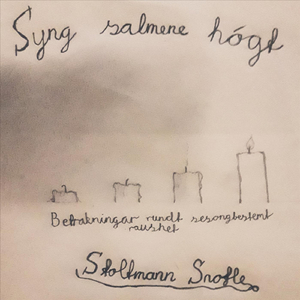 Syng salmene högt
Betrakningar rundt sesongbestemt
raushet
Stoltmann Snofle